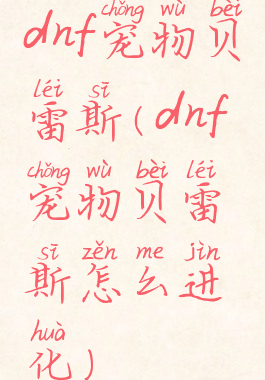 chǒng wù bèi
dnf宠物贝
léi sī
雷斯(dnf
chǒng wù bèi léi
宠物贝雷
sī zěn me jìn
斯怎么进
huà
化)